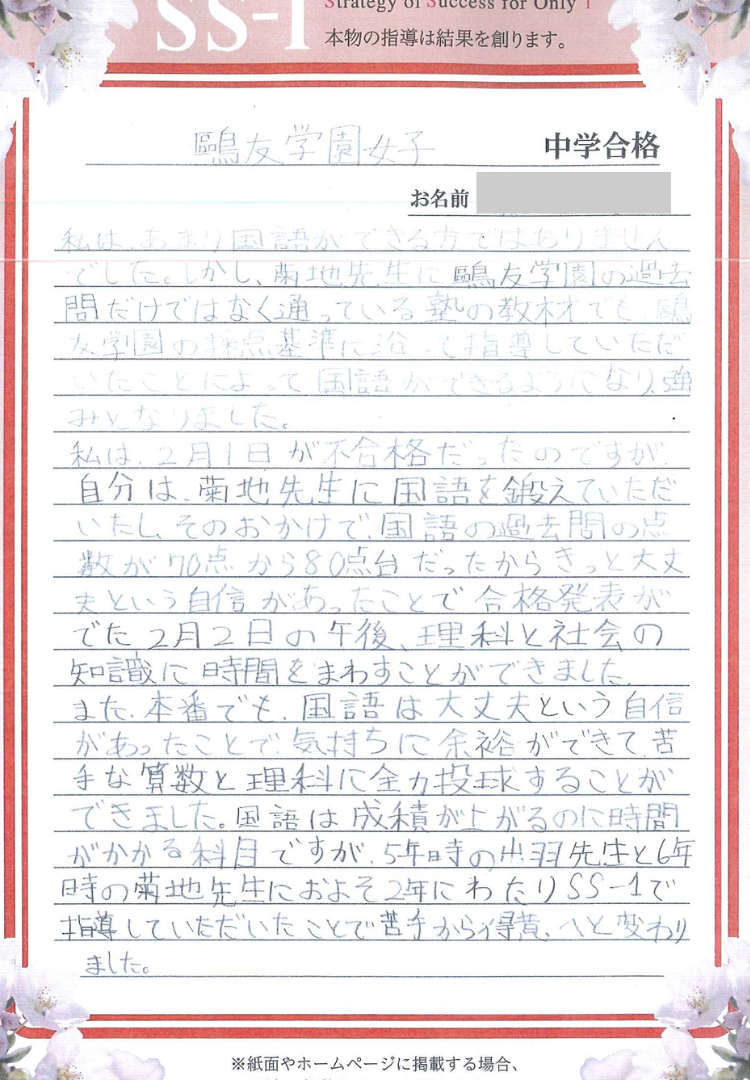 SS-1
Strategy of Success for Only 1
本物の指導は結果を創ります。
鷗友学園女子 中学合格
お名前
私は、あまり国語ができる方ではありません
でした。しかし、菊地先生に鷗友学園の過去
問だけではなく通っている塾の教材でも、鷗
友学園の採点基準に沿って指導していただ
いたことによって国語ができるようになり、強
みとなりました。
私は、2月1日が不合格だったのですが、
自分は、菊地先生に国語を鍛えていただ
いたし、そのおかげで、国語の過去問の点
数が70点から80点台だったからきっと大丈
夫という自信があったことで合格発表が
でた2月2日の午後、理科と社会の
知識に時間をまわすことができました。
また、本番でも、国語は大丈夫という自信
があったことで、気持ちに余裕ができて苦
手な算数と理科に全力投球することが
できました。国語は成積が上がるのに時間
がかかる科目ですが、5年時の出羽先生と6年
時の菊地先生におよそ2年にわたりSS-1で
指導していただいたことで苦手から得意、へと変わり
ました。
※紙面やホームページに掲載する場合、